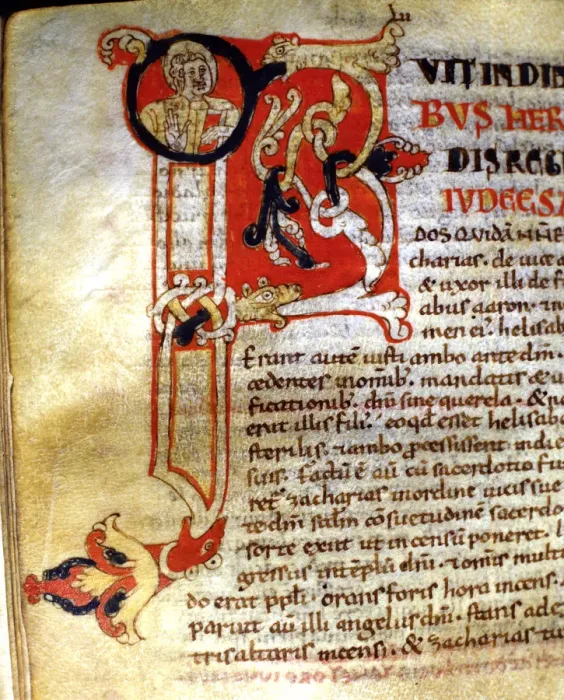 VIT IN DI
BVS HER
DIS REG
IVDEE SA
DOS QVIDĀ
charias. de uice a
& uxor illi de f
abus aaron. &
men ei. helisab
Erant autē iusti ambo ante dm̄.
cedentes in omib. mandatis & iu
ficationib. dn̄i sine querela. & n
erat illis fili. eo qd esset helisab
sterilis. & ambo processissent in die
suis. Factū ē aū cū sacerdotio fu
ret zacharias in ordine uicis sue
te dm̄ sedm̄ cōsuetudinē sacerdo
sorte exiit ut incensū poneret. 
gressus in tēplū dn̄i. & omis multi
do erat ppli. orans foris hora incensi.
paruit aū illi angelus dn̄i. stans a de
tris altaris incensi. & zacharias tu